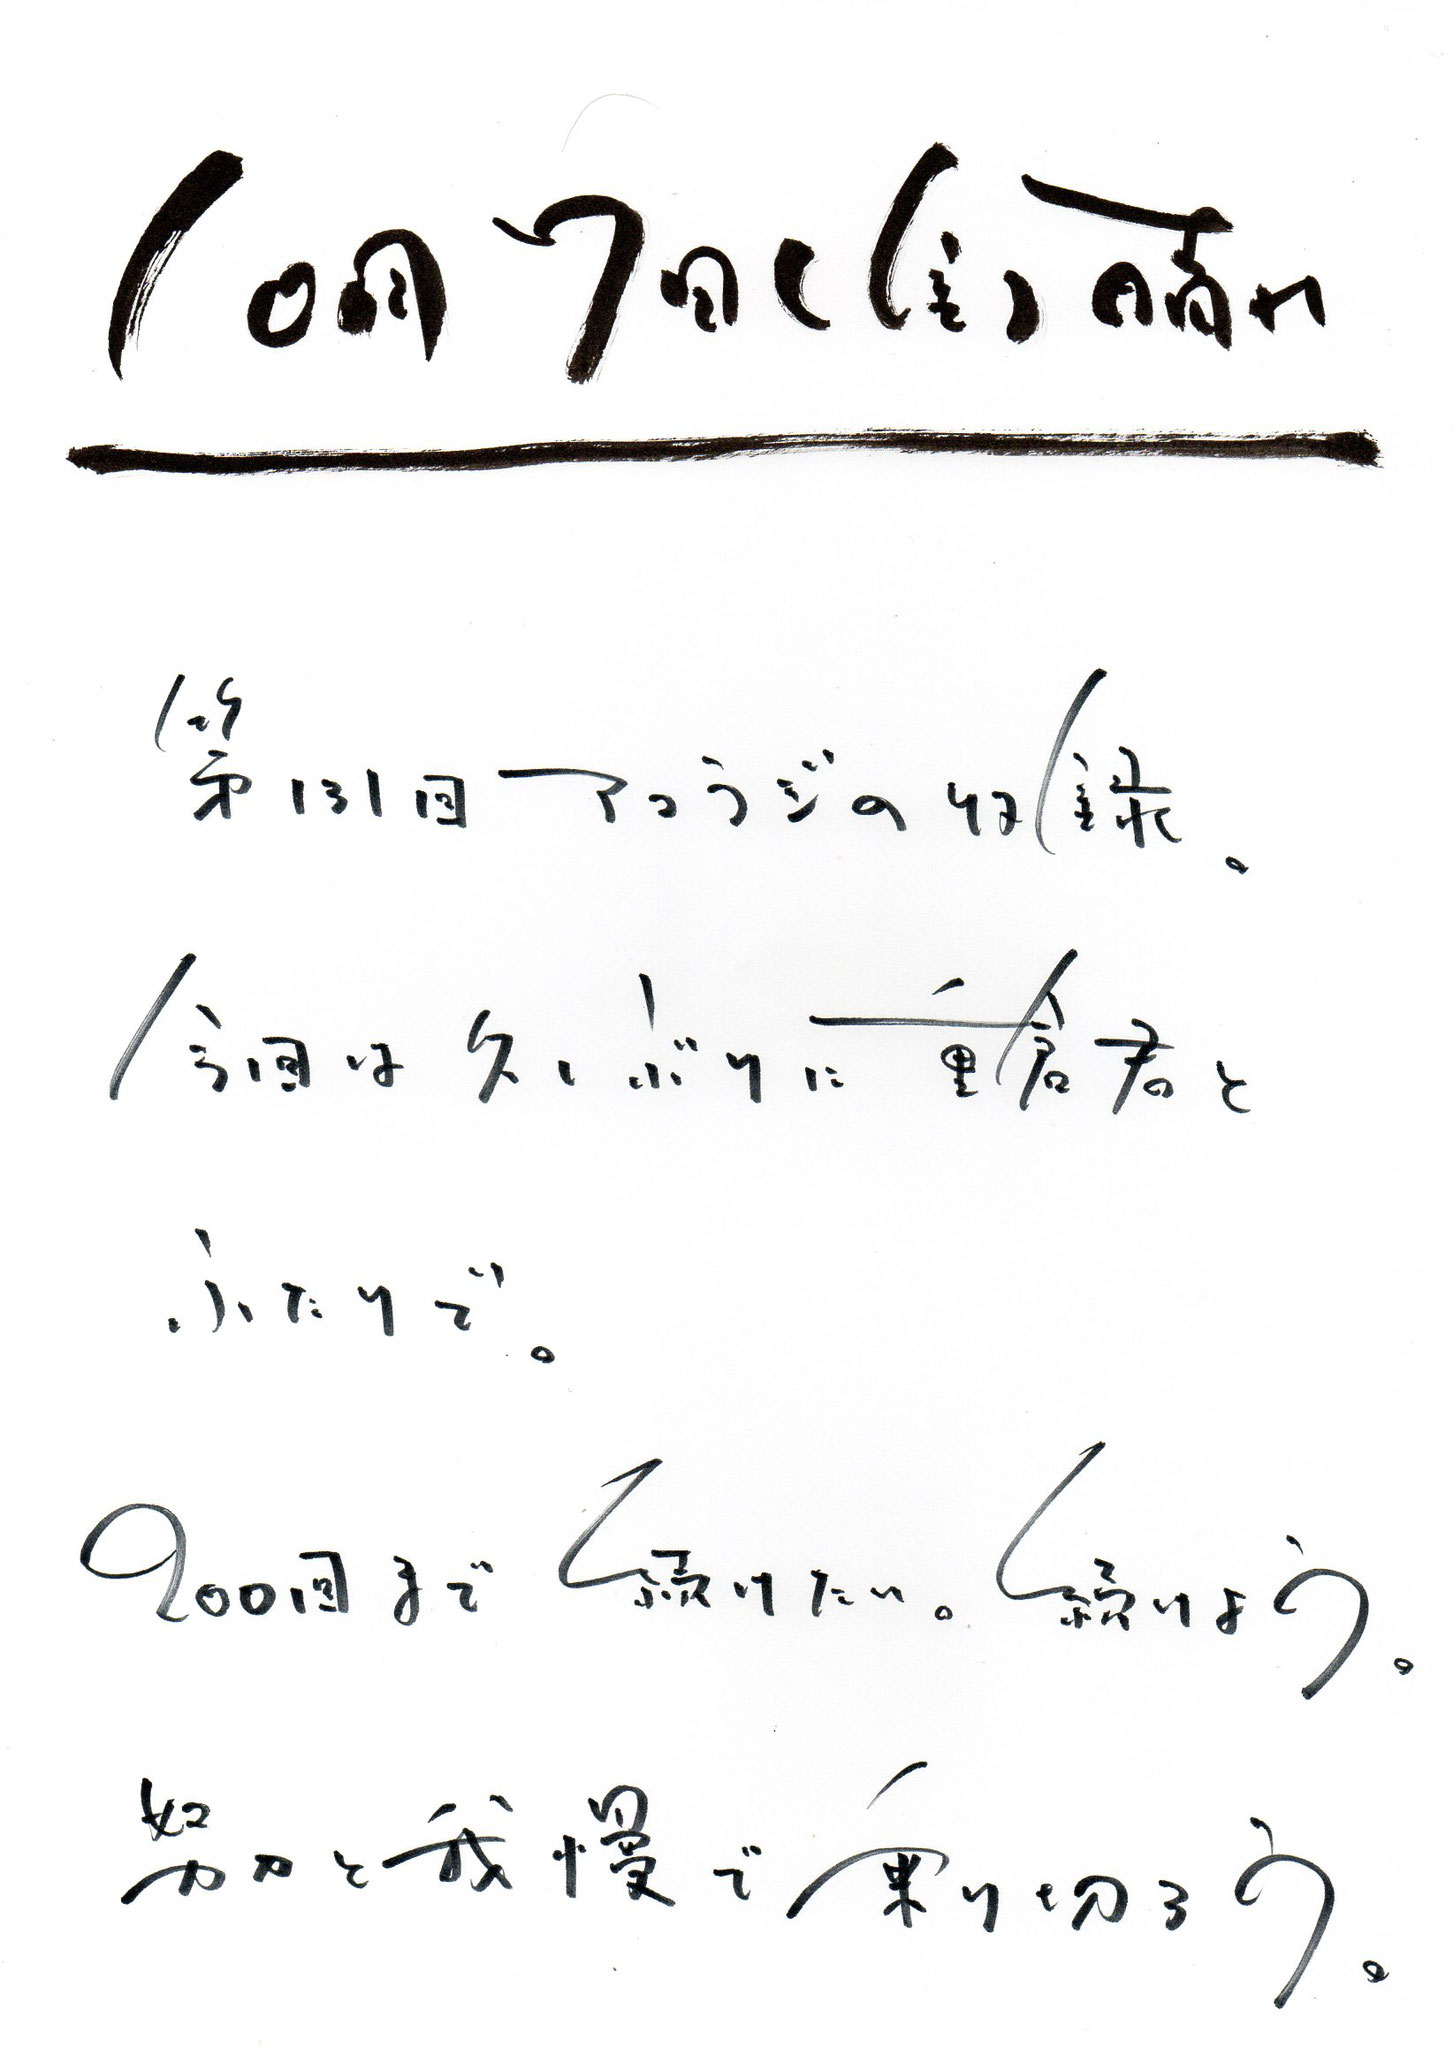 10月7日(金)晴れ
第131回アコラジの収録。
今回は久しぶりに重倉君と
ふたりで。
900回まで続けたい。続けよう。
努力と我慢で乗り切ろう。